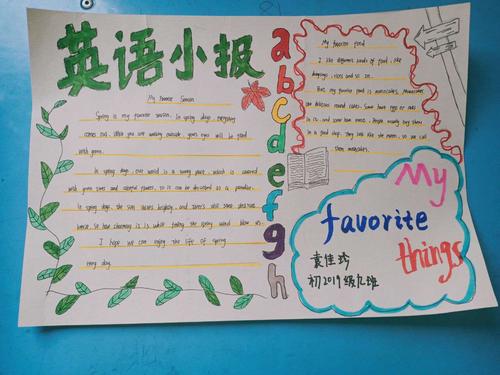 英语小报
My favorite Season
Spring is my favorite season. In spring days, everything
comes out. When you are walking outside, your eyes will be filled
with green.
In spring days, our world is a party, which is covered
with green trees and colorful flowers, so it can be described as a paradise.
In spring days, the sun shines brightly, and
how charming is is while feeling the spring wind blow us.
I hope we can enjoy the life of spring
every day.
a
b
c
d
e
f
g
h
My favorite food
I like different kinds of food, like
dumplings, rices and so on.
But my favorite food is mooncakes. Mooncakes
are delicious round cakes. Some have eggs or nuts
in it, and some have meat. People mainly buy them
in a food shop. They look like the moon, so we call
them mooncakes.
My
favorite
things
袁佳珍
初2019级九班